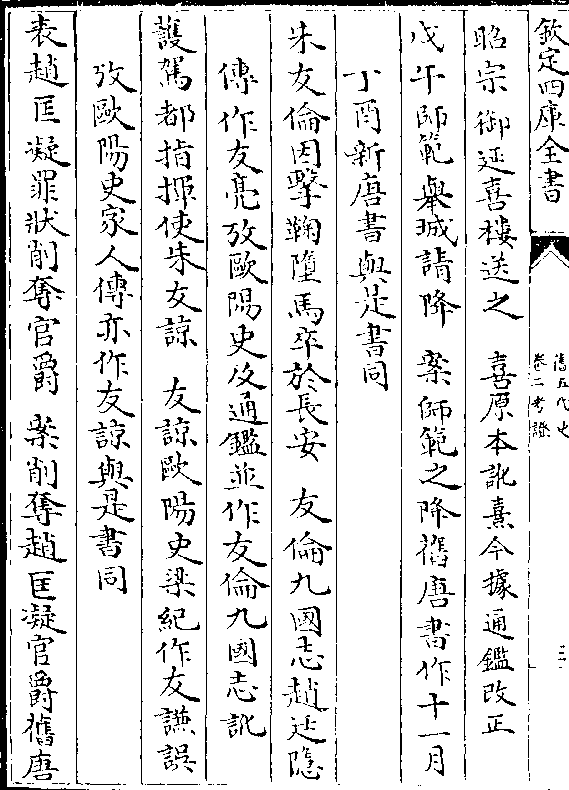 欽定四庫全書
舊五代史
卷二考證
三
昭宗御延喜樓送之　喜原本訛熹今據通鑑改正
戊午師範舉城請降　案師範之降舊唐書作十一月
丁酉新唐書與是書同
朱友倫因擊鞠墮馬卒於長安　友倫九國志趙廷隱
傳作友亮攷歐陽史及通鑑並作友倫九國志訛
護駕都指揮使朱友諒　友諒歐陽史梁紀作友謙誤
攷歐陽史家人傳亦作友諒與是書同
表趙匡凝罪狀削奪官爵　案削奪趙匡凝官爵舊唐